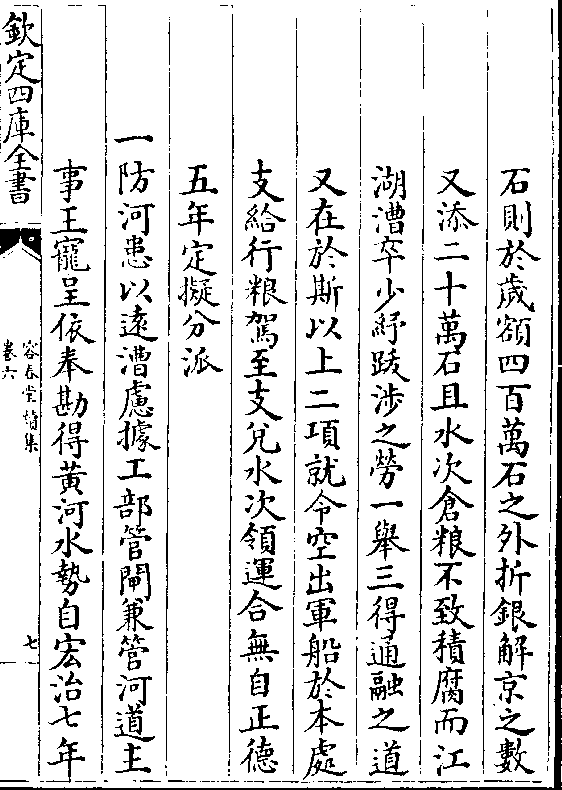 石則於歲額四百萬石之外折銀解京之數
又添二十萬石且水次倉粮不致積腐而江
湖漕卒少紓跋涉之勞一舉三得通融之道
又在於斯以上二項就令空出軍船於本處
支給行粮駕至支兌水次領運合無自正德
五年定擬分派
一防河患以遠漕慮據工部管閘兼管河道主
事王寵呈依奉勘得黄河水勢自宏治七年
欽定四庫全書
容春堂續集
卷六
七